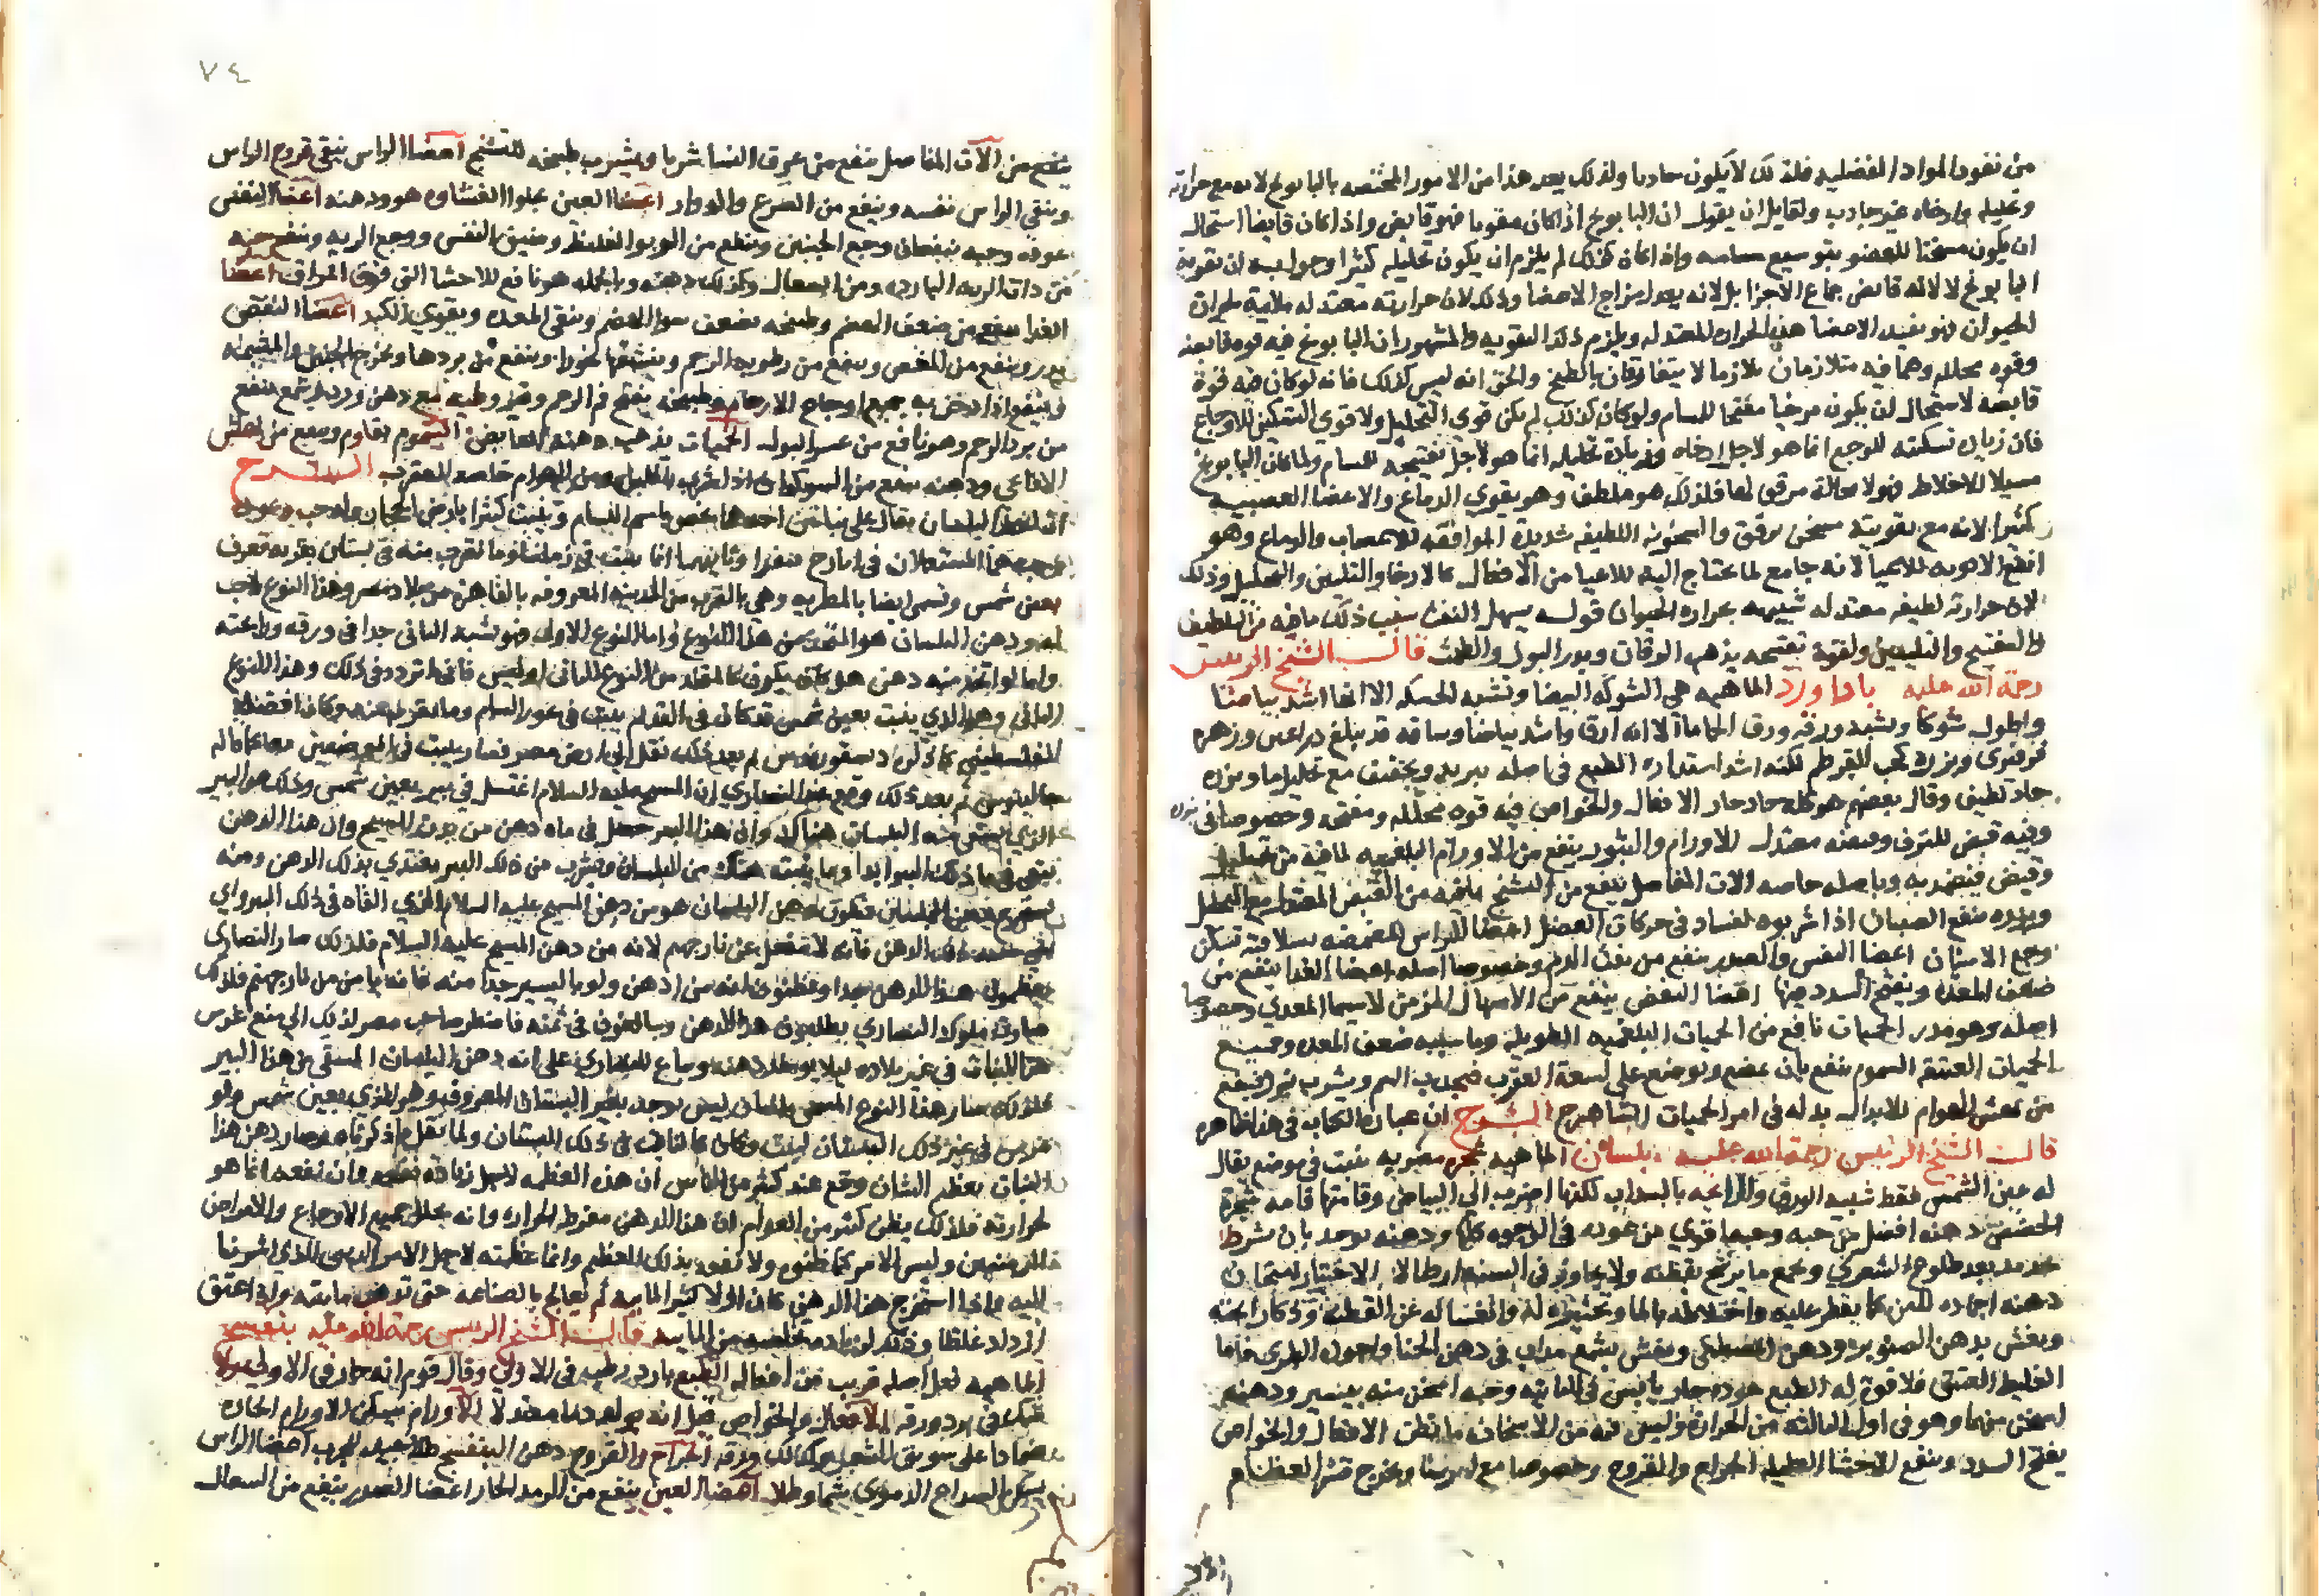 من نفوذ المواد الفضلية فلذلك لا يكون جاذبا ولذلك يعد هذا من الامور المختصه بالبابونج لانه مع حرارته
وتحليله وارخاه غير جاذب ولقايل ان يقول ان البابونج اذا كان مقويا فهو قابض واذا كان قابضا استحال
ان يكون مسخنا للعضو بتوسيع مسامه واذا كان كذلك لم يلزم ان يكون تحليله كثيرا وجوابه ان تقوية
البابونج لا لانه قابض جماع الاجزا بل لانه يعدل مزاج الاعضا وذلك لان حرارته معتدله ملايمة لحرارة
الحيوان فهو يفيد الاعضا هذه الحراره المعتدله ويلزم ذلك التقويه والمشهور ان البابونج فيه قوه قابضه
وقوه محلله وهما فيه متلازمان تلازما لا يتفارقان بالطبخ والحق انه ليس كذلك فانه لو كان فيه قوة
قابضه لاستحال ان يكون مرخيا مفتحا للمسام ولو كان كذلك لم يكن قوى التحليل ولا قوى التسكين للاوجاع
فان زياده تسكينه للوجع انما هو لاجل ارخاه وزيادة تحليله انما هو لاجل تفتيحه للمسام ولما كان البابونج
مسيلا للاخلاط فهو لا محالة مرقق لها فلذلك هو ملطف وهو يقوي الدماغ والاعضا العصبيه
كثيرا لانه مع تقويته مسخن مرقق والسخونه اللطيفه شديدة الموافقه للاعصاب والدماغ وهو
انفع الادويه للاعيا لانه جامع لما يحتاج اليه للاعيا من الافعال كالارخا والتليين والتحليل وذلك
لان حرارته لطيفه معتدله شبيهه بحراره الحيوان قوله يسهل النفث سبب ذلك ما فيه من التلطيف
والتفتيح والتليين ولقوة تفتيحه يذهب اليرقان ويدر البول والطمث قال الشيخ الرييس
رحمة الله عليه باداورد الماهيه هي الشوكه البيضا وتشبه الحسكه الا انها اشد بياضا
واطول شوكا ويشبه ورقه ورق الحاما الا انه ارق واشد بياضا وساقه قد يبلغ ذراعين وزهره
فرفيري وبزره كحب القرطم لكنه اشد استداره الطبع في اصله تبريد وتجفيف مع تحليل ما وبزره
حار لطيف وقال بعضهم هو كله حاد حار الافعال والخواص فيه قوه محلله ومفتحه وخصوصا في بزره
وفيه قبض للنزف وقبضه معتدل الاورام والبثور ينفع من الاورام البلغميه لما فيه من تحليل
وقبض فيضمد به وباصله خاصه الات المفاصل ينفع من التشنج لما فيه من القبض المعتدل مع التحليل
وبزره ينفع الصبيان اذا شربوه لفساد في حركات العضل اعضا الراس المضمضه بسلاقته تسكن
وجع الاسنان اعضا النفس والصدر ينفع من نفث الدم وخصوصا اصله اعضا الغدا ينفع من
ضعف المعده ويفتح السدد فيها اعضا النفض ينفع من الاسهال المزمن لا سيما المعدي وخصوصا
اصله وهو مدر الحميات نافع من الحميات البلغميه الطويله وما سببه ضعف المعده وجميع
الحميات العتيقه السموم ينفع بان يمضغ ويوضع على لسعة العقرب فيجذب السم ويشرب بزره فينفع
من نهش الهوام الابدال بدله في امر الحميات الشاهترج الشرح ان عبارة الكتاب في هذا ظاهره
قال الشيخ الرئيس رحمة الله عليه بلسان الماهيه شجره مصريه ينبت في موضع يقال
له عين الشمس فقط شبيه الورق والرايحه بالسداب لكنها اضرب الى البياض وقامتها قامه شجرة
الحضض دهنه افضل من حبه وحبه اقوي من عوده في الوجوه كلها ودهنه يوخذ بان يشرط
بحديد بعد طلوع الشعري ويجمع ما يرشح بقطنه ولا يجاوز في السنه ارطالا الاختيار امتحان
دهنه اجماده اللبن كما يقطر عليه واختلاطه بالما وتخثيره له وانغساله عن القطنة وذكا رايحته
ويغش بدهن الصنوبر ودهن المصطكى ويغش بشمع مذاب في دهن الحنا واجوده الطري فاما
الغليظ العتيق فلا قوة له الطبع عوده حار يابس في الثانيه وحبه اسخن منه بيسير ودهنه
اسخن منهما وهو في اول الثالثه من الحراره وليس فيه من الاسخان ما يظن الافعال والخواص
يفتح السدد وينفع الاحشا العليله الجراح والقروح وخصوصا مع ايرسا ويخرج قشر العظام
٧٤
ينفع من الات المفاصل ينفع من عرق النسا شربا ويشرب طبيخه للتشنج اعضا الراس ينقي قروح الراس
وينقي الراس نفسه وينفع من الصرع والدوار اعضا العين يجلوا الغشاوه هو ودهنه اعضا النفس
عوده وحبه ينفعان وجع الجنبين وينفع من الربو الغليظ وضيق النفس ووجع الريه وينفع حبه
من ذات الريه البارده ومن السعال وكذلك دهنه وبالجمله هو نافع للاحشا التي فوق المراق اعضا
الغدا ينفع من ضعف الهضم وطبيخه يضعف سو الهضم وينقي المعده ويقوي الكبد اعضا النفض
يدر وينفع من المغص وينفع من رطوبه الرحم وينشفها بخورا وينفع من بردها ويخرج الجنين والمشيمه
وينفع اذا دخن به جميع اوجاع الارحام وطبيخه يفتح فم الرحم وقيروطيه مع دهن ورد وشمع ينفع
من برد الرحم وهو نافع من عسر البول الحميات يذهب دهنه النافض السموم يقاوم وينفع من نهش
الافاعي ودهنه ينفع من الشوكران اذا شرب باللبن ومن الهوام خاصه العقرب الشرح
ان لفظ البلسان يقال على نباتين احدهما يختص باسم البسام وينبت كثيرا بارض الحجاز وله حب وعود
وحبه هما المستعملان في ايارج فيقرا وثانيهما انما ينبت في زماننا وما يقرب منه في بستان بقريه تعرف
بعين شمس وتسمى ايضا بالمطريه وهي بالقرب من المدينه المعروفه بالقاهره من بلاد مصر وهذا النوع لا حب
له ودهن البلسان هو المتخذ من هذا النوع واما النوع الاول فهو يشبه الثاني جدا في ورقه ورايحته
واما لو اتخذ منه دهن هو كان يكون كالمتخذ من النوع الثاني او ليس فاني اتردد في ذلك وهذا النوع
الثاني وهو الذي ينبت بعين شمس قد كان في القديم ينبت في غور الشام وما يقرب منه وكان افضله
الفلسطيني كما ذكر ديسقوريدس ثم بعد ذلك نقل الى ارض مصر فصار ينبت في الموضعين معا كما قاله
جالينوس ثم بعد ذلك وقع عند النصاري ان المسيح عليه السلام اغتسل في بير بعين شمس وذلك هو البير
الذي يسقى منه البلسان هناك وان هذا البير حصل في ماه دهن من بدن المسيح وان هذا الدهن
يبقى في ما ذلك البير ابدا وما ينبت هناك من البلسان ويشرب من ذلك البير يغتذي بذلك الدهن ومنه
هذا النبات في غير بلاده ليلا يوجد دهنه ويباع للنصاري على انه دهن البلسان المستقي من هذا البير
فلذلك صار هذا النوع المسمى بالبلسان ليس يوجد بغير البستان المعروف وهو الذي بعين شمس ولو
غرس في غير ذلك البستان لنبت وكان كالنابت في ذلك البستان ولما نقل ما ذكرناه وصار دهن هذا
النبات يعظم الشان وقع عند كثير من الناس ان هذه العظمه لاجل زيادة نفعه وان نفعه انما هو
لحرارته فلذلك يظن كثير من العوام ان هذا الدهن مفرط الحراره وانه يحلل جميع الاوجاع والامراض
المزمنه وليس الامر كما ظنوه ولا نفعه بذلك العظم وانما عظمته لاجل الامر الديني الذي اشرنا
اليه وما اذا استخرج هذا الدهن كان اولا كثير المائيه ثم يعالج بالصناعه حتى تذهب مائيته واذا عتق
ازداد غلظا وذلك لزياده تخلصه من المائيه قال الشيخ الرييس رحمة الله عليه بنفسج
الماهيه فعل اصله قريب من افعاله الطبع بارد رطب في الاولى وقال قوم انه حار في الاولى
الافعال والخواص قيل انه يولد دما معتدلا الاورام يسكن الاورام الحاره
ضمادا على سويق الشعير وكذلك ورقه الجراح والقروح دهن البنفسج طلا جيد للجرب اعضا الراس
يسكن الصداع الدموي شما وطلا اعضا العين ينفع من الرمد الحار اعضا الصدر ينفع من السعال